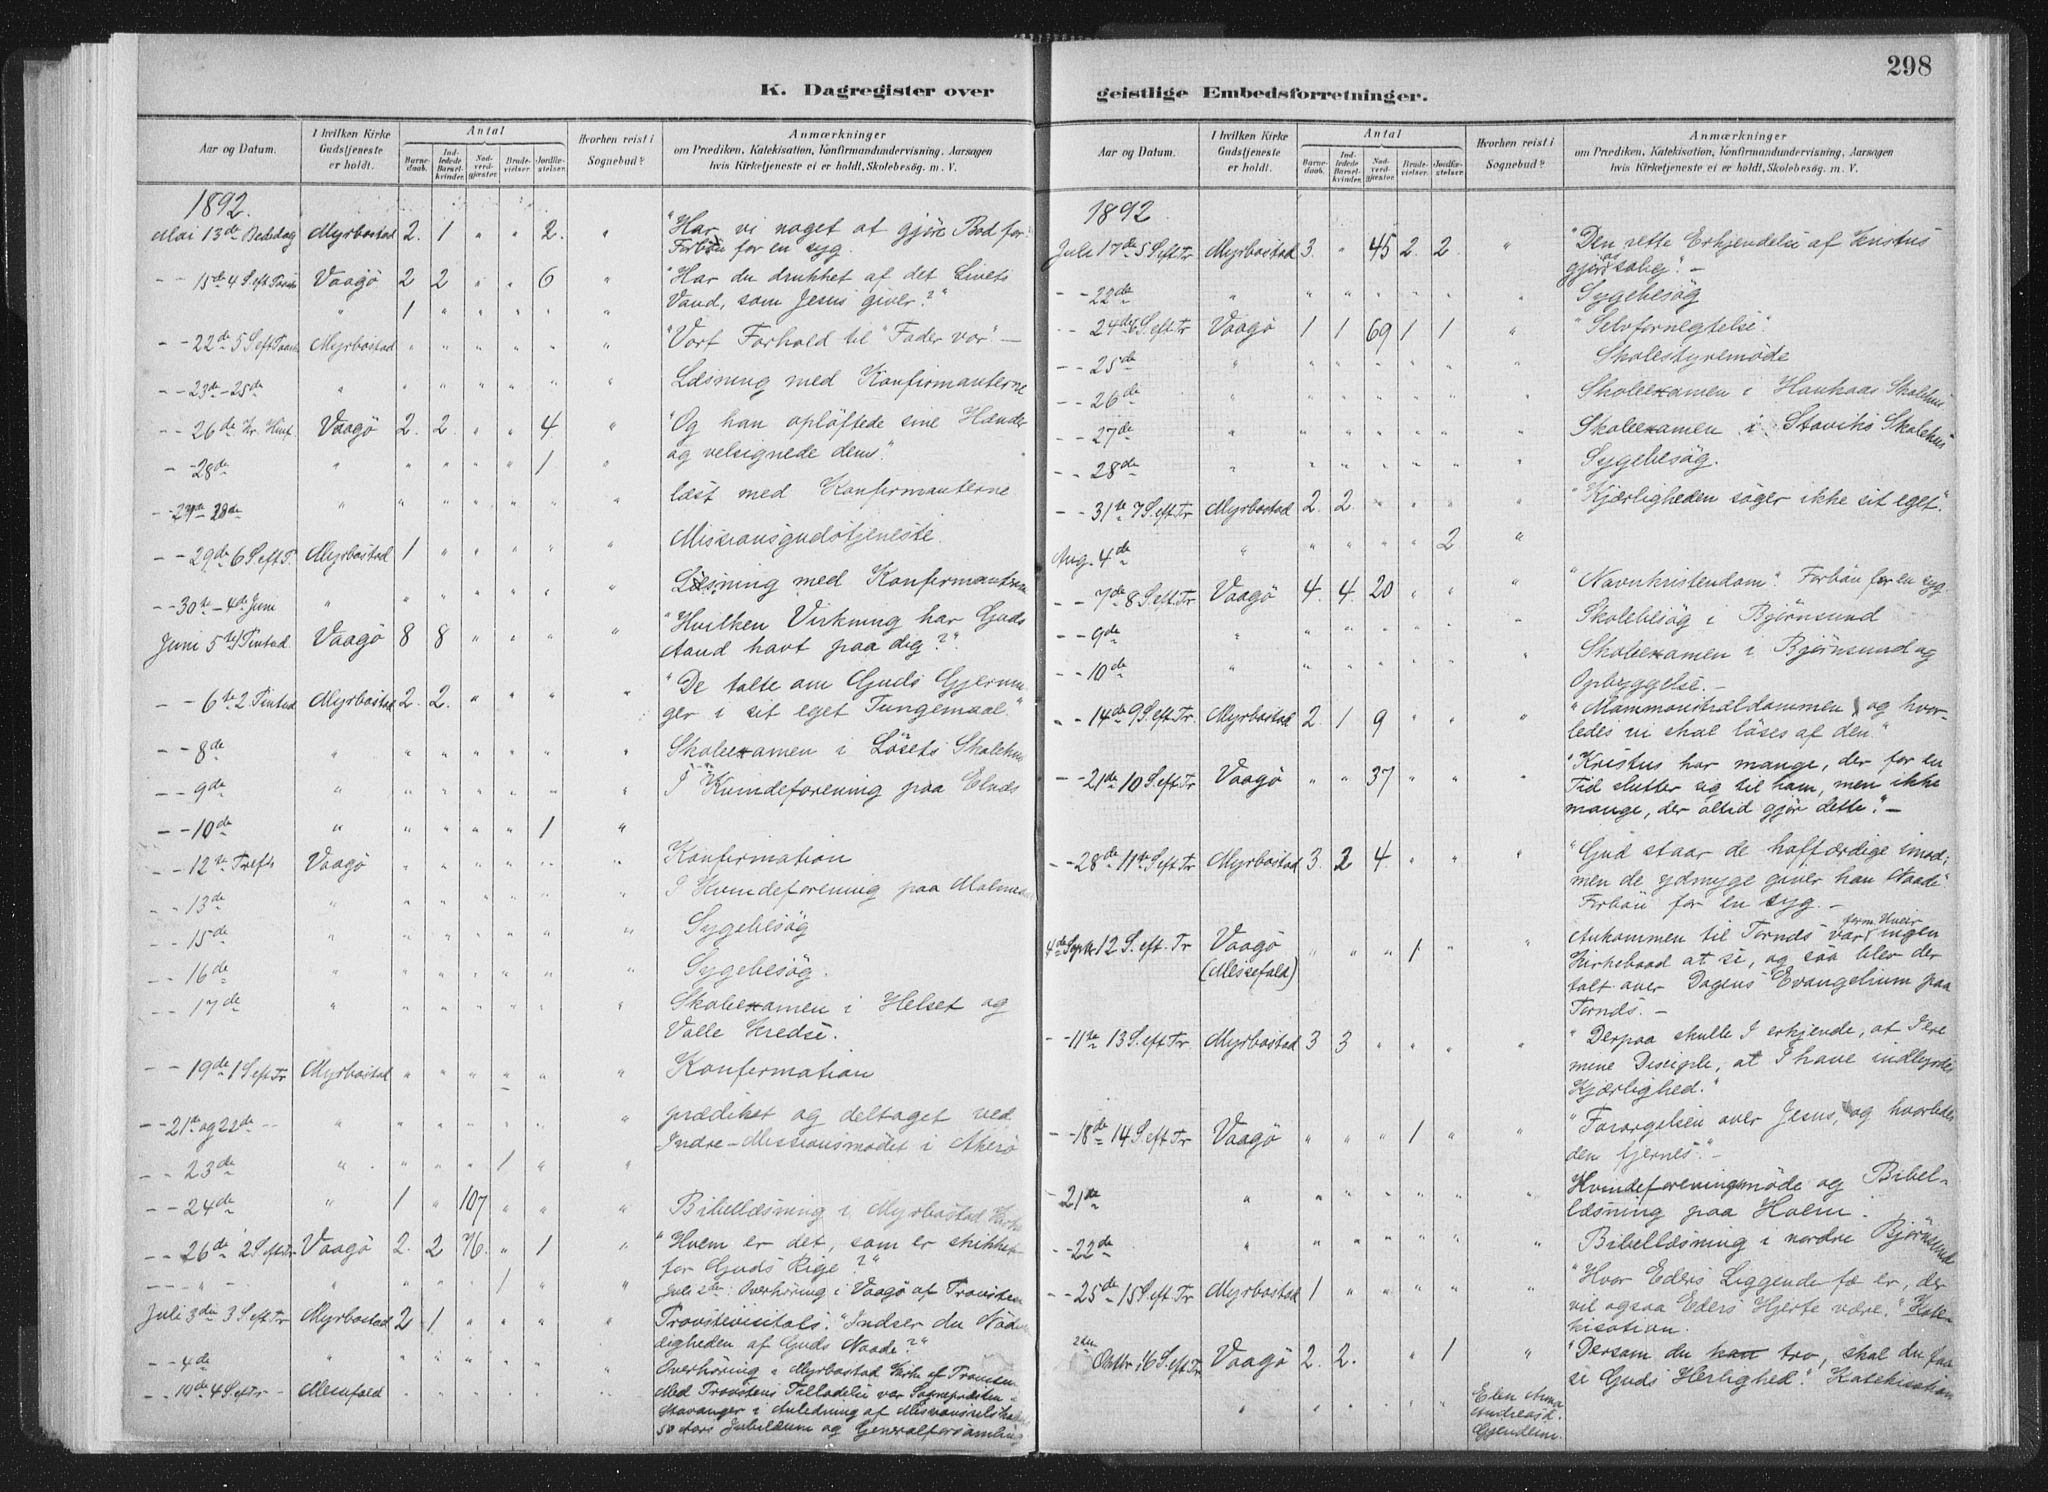 298
K. Dagregister over
Aar og Datum.
I hvilken Kirke Gudstjeneste er holdt.
Antal
Barnedaab.
Indledede Barselkvinder.
Nadverdgjæster.
Brudevielser.
Jordfæstelser.
Hvorhen reist i Sognebud?
Anmærkninger
om Prædiken, Katekisation, Konfirmandundervisning, Aarsagen
hvis Kirketjeneste ei er holdt, Skolebesøg. m. V.
1892.
Mai 13de Bededag Myrbostad 2. 1 " " 2. " "Har vi noget at gjøre Bod for"
Forbøn for en syg.
- - 15de 4 S. eft Paaske Vaagø 2 2 " " 6 " "Har du drukket af det Livets
" 1 " " " " " Vand, som Jesus giver?"
- - 22de 5 S eft Paaske Myrbostad " " " " " " "Vort Forhold til "Fader vor" -
- - 23de - 25de " " " " " " " Læsning med Konfirmanterne
- - 26de Kr. Himf. Vaagø 2. 2. " " 4 " "Og han opløftede sine Hænder
og velsignede dem".
- - 28de " " " " " 1 "
- - 27de 28de " " " " " " " læst med Konfirmanterne
- - 29de 6 S. eft P. Myrbostad 1 " " " " Missionsgudstjeneste.
- - 30te - 4de Juni " " " " " " " Læsning med Konfirmanterne
Juni 5te 1 Pintsd. Vaagø 8 8 " " " " "Hvilken Virkning har Guds
Aand havt paa dig?".
- - 6te 2 Pintsd Myrbostad 2. 2. " " " " "De talte om Guds Gjernin-
ger i sit eget Tungemaal."
- - 8de " " " " " " " Skoleexamen i Løsets Skolehus
- - 9de " " " " " " " I Kvindeforening paa Elnæs
- - 10de " " " " " 1 "
- - 12te Trefh Vaagø " " " " " " Konfirmation
- - 13de " " " " " " " I Kvindeforening paa Malme
- - 15de " " " " " " " Sygebesøg
- - 16de " " " " " " " Sygebesøg.
- - 17de " " " " " " " Skoleexamen i Helset og
Valle Kredse.
- - 19de 1 S eft Tr Myrbostad " " " " " " Konfirmation
- - 21de og 22de - - " " " " " " " prædiket og deltaget ved
Indre-Missionsmødet i Akerø
- - 23de " " " " 1 " "
- - 24de " 1 " 107 " " " Bibellæsning i Myrbostad Kirke
- - 26de 2 S eft Tr Vaagø 2. 2 76. " 1 " "Hvem er det, som er skikket
for Guds Rige?"
- - " - " " " " 1 " " Juli 2de: Overhøring i Vaagø af Provsten
Juli 3die 3 S eft Tr Myrbostad 2 1 " " " " Provstevisitats. "Indser du Nød-
digheden af Guds Naade?"
- - 4de " " " " " " " Overhøring i Myrbostad Kirke af Provsten
- - 10de 4 S eft Tr - Messefald Med Provstens Tilladelse var Sognepræsten
Stavanger i Anledning af Missionsselskabets
50 Aars Jubilæum og Generalforsamling
geistlige Embedsforretninger.
Aar og Datum.
I hvilken Kirke Gudstjeneste er holdt.
Antal
Barnedaab.
Indledede Barselkvinder.
Nadverdgjæster.
Brudevielser.
Jordfæstelser.
Hvorhen reist i Sognebud?
Anmærkninger
om Prædiken, Katekisation, Konfirmandundervisning, Aarsagen
hvis Kirketjeneste ei er holdt, Skolebesøg. m. V.
1892
Juli 17de 5 S eft Tr Myrbostad 3. " 45 2. 2. " "Den rette Erkjendelse af Kristus
gjør os salig". -
- - 22de " " " " " " " Sygebesøg
- - 24de 6 S. eft Tr Vaagø 1 1 69 1 1 " "Selvfornegtelse".
- - 25de " " " " " " " Skolestyremøde
- - 26de " " " " " " " Skoleexamen i Haukaas Skolehus
- - 27de " " " " " " " Skoleexamen i Staviks Skolehus
- - 28de " " " " " " " Sygebesøg.
- - 31te 7 S. eft Tr Myrbostad 2. 2. " " " " "Kjærligheden søger ikke sit eget".
Aug. 4de " " " " " 2 "
- - 7de 8 S eft Tr Vaagø 4. 4. 20 " " " "Navnkristendom". Forbøn for en syg
- - 9de " " " " " " " Skolebesøg i Bjørnsund
- - 10de " " " " " " " Skoleexamen i Bjørnsund og
Opbyggelse. -
- - 14de 9 S eft Tr Myrbostad 2. 1 9 " " " "Mammonstrældommen og hvor-
ledes vi skal løses af den."
- - 21de 10 S. eft Tr Vaagø " " 37 " " " "Kristus har mange, der for en
Tid slutter sig til ham, men ikke
mange, der altid gjør dette." -
- - 28de 11te S eft Tr Myrbostad 3. 2 4. " " " "Gud staar de hoffærdige imod;
men de ydmyge giver han Naade".
Forbøn for en syg. -
4de Septbr. 12 S. eft. Tr Vaagø (Messefald) " " " 1 " " Ankommen til Tornæs var form. Uveir ingen
Kirkebaad at se, og saa blev der
talt over Dagens Evangelium paa
Tornæs. -
- - 11te 13 S. eft Tr. Myrbostad 3 3 " " " " "Derpaa skulle I erkjende, at I ere
mine Disciple, at I have indbyrdes
Kjærlighed."
- - 18de 14 S. eft Tr Vaagø " " " 1 " " "Forargelsen over Jesus, og hvorledes
den fjernes". -
- 21de " " " " " " " Kvindeforeningsmøde og Bibel-
læsning paa Holm.
- - 22de " " " " " " " Bibellæsning i nordre Bjørnsund
- - 25de 15 S. eft Tr Myrbostad 1 " " " " " "Hvor Eders Liggendefæ er, der
vil ogsaa Eders Hjerte være." Kate-
kisation.
2den Oktbr. 16 S. eft Tr Vaagø 2. 2. " 1 " "Dersom du kan tro, skal du faa
se Guds Herlighed". Katekisation
" " " " " " Elen Anna
Andreasd.
Gjendem.